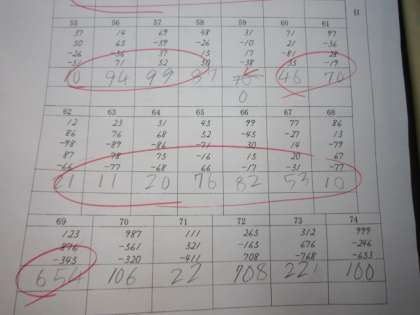 55 56 57 58 59 60 61
37 14 69 48 31 71 97
50 63 -39 -26 -10 21 -36
-26 15 17 -81 28
-51 71 52 50 -38 35 -19
10 94 99 87 46 70
0
62 63 64 65 66 67 68
12 23 31 45 99 77 86
86 76 68 52 -45 -27 13
-98 -89 -86 -71 30 14 -79
87 78 75 -16 15 20 67
-66 -77 -68 66 -17 -31 -77
21 11 20 76 82 53 10
69 70 71 72 73 74
123 987 111 265 312 999
876 -561 321 -165 676 -246
-345 -320 -411 708 -768 -653
654 106 22 708 221 100